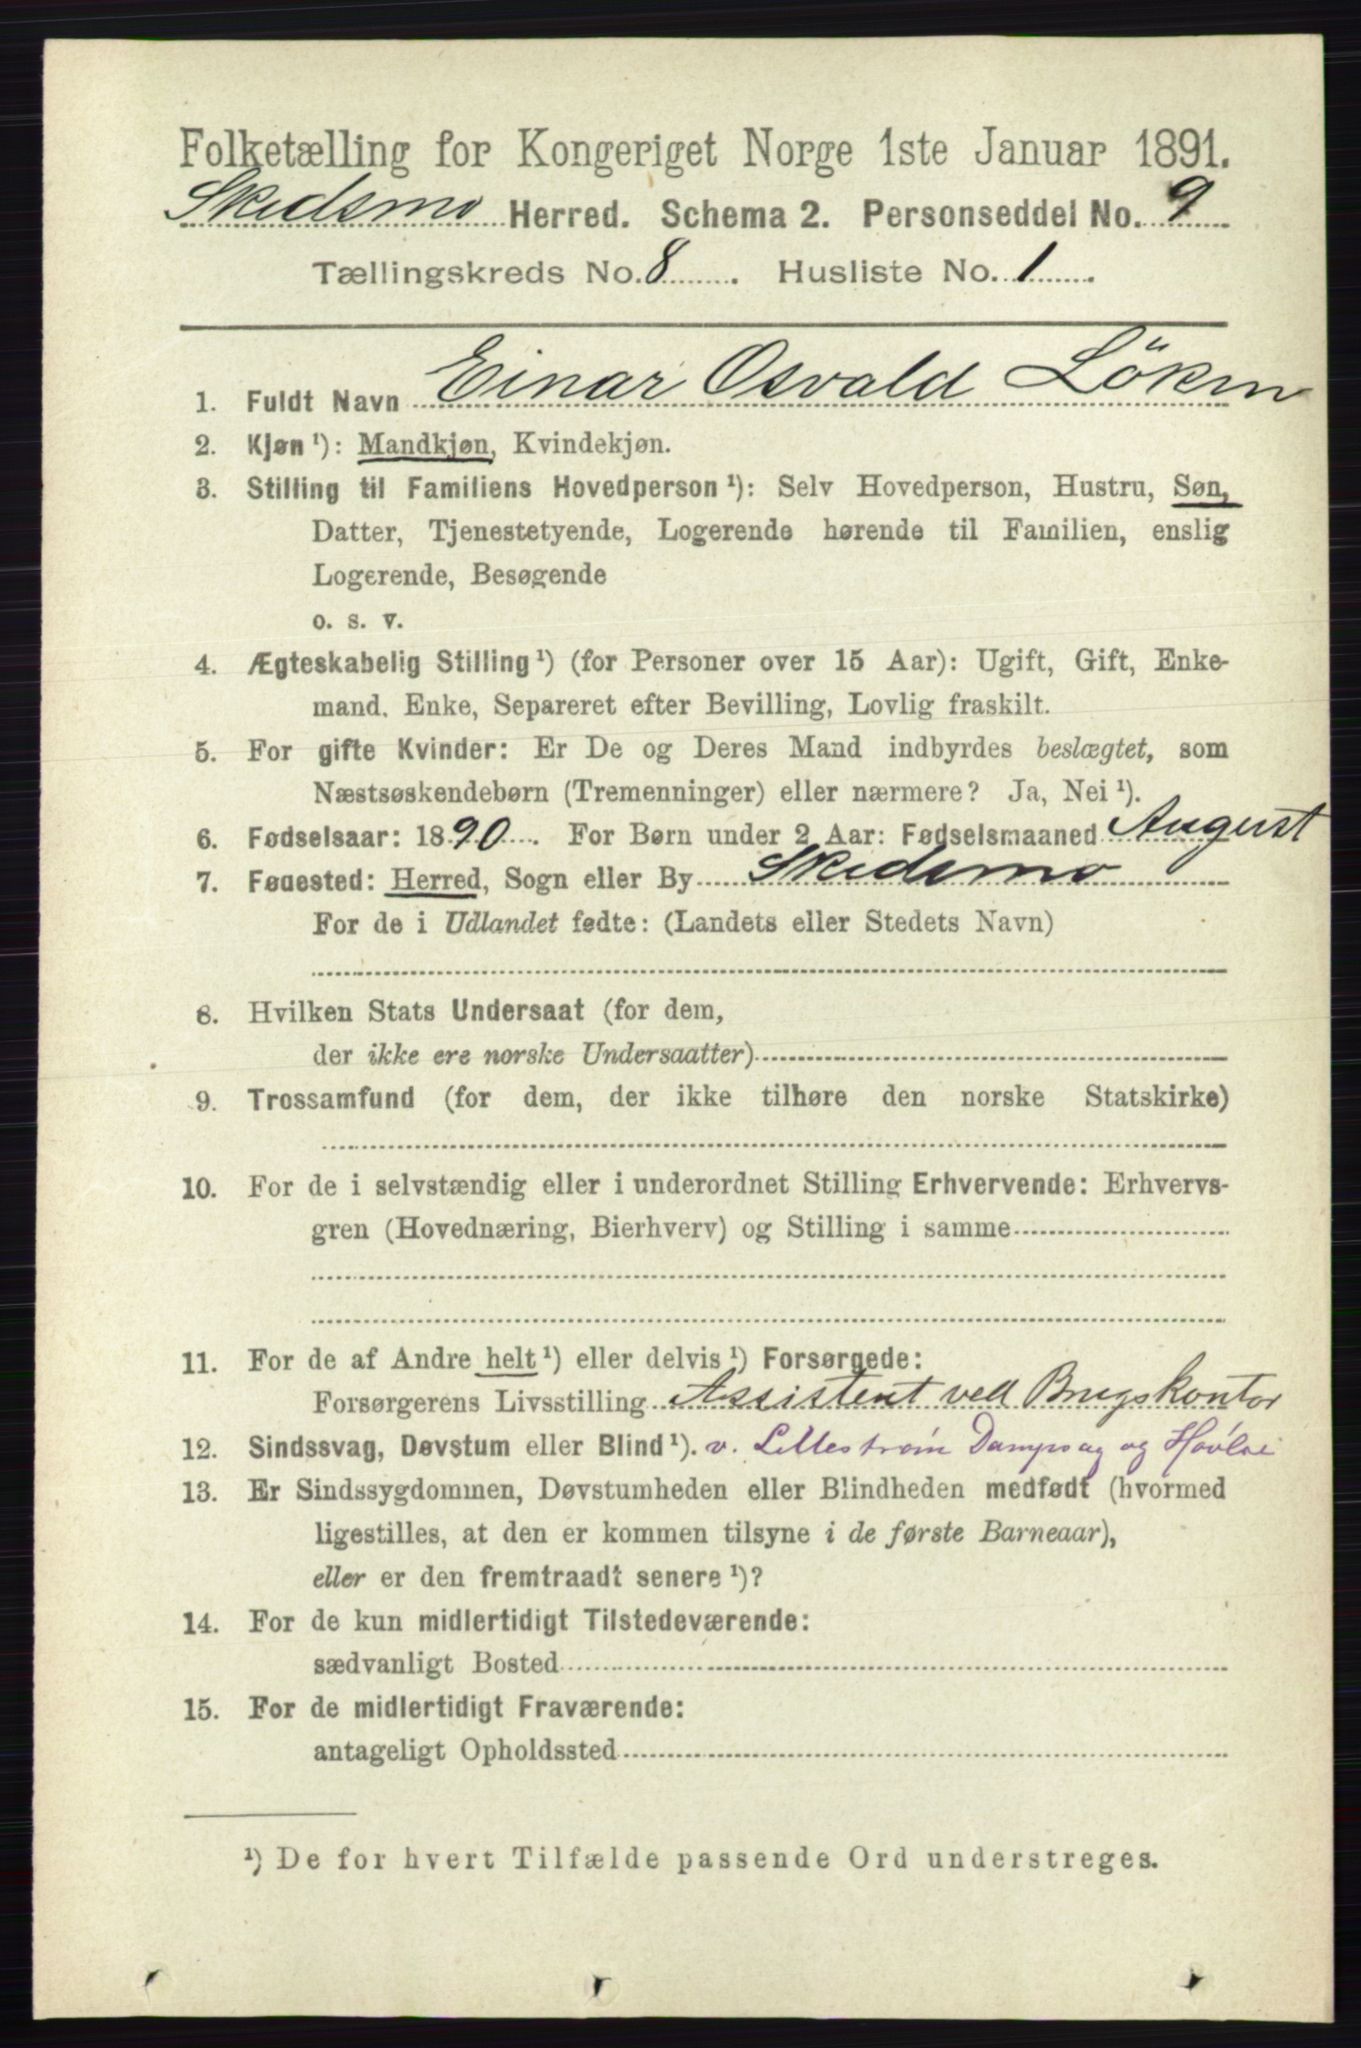 Folketælling for Kongeriget Norge 1ste Januar 1891.
Skedsmo Herred. Schema 2. Personseddel No. 9
Tællingskreds No. 8. Husliste No. 1.
1. Fuldt Navn Einar Osvald Löken
2. Kjøn ¹): Mandkjøn, Kvindekjøn.
3. Stilling til Familiens Hovedperson ¹): Selv Hovedperson, Hustru, Søn,
Datter, Tjenestetyende, Logerende hørende til Familien, enslig
Logerende, Besøgende
o. s. v.
4. Ægteskabelig Stilling ¹) (for Personer over 15 Aar): Ugift, Gift, Enke-
mand, Enke, Separeret efter Bevilling, Lovlig fraskilt.
5. For gifte Kvinder: Er De og Deres Mand indbyrdes beslægtet, som
Næstsøskendebørn (Tremenninger) eller nærmere? Ja, Nei ¹).
6. Fødselsaar: 1890. For Børn under 2 Aar: Fødselsmaaned August
7. Fødested: Herred, Sogn eller By Skedsmo
For de i Udlandet fødte: (Landets eller Stedets Navn)
8. Hvilken Stats Undersaat (for dem,
der ikke ere norske Undersaatter)
9. Trossamfund (for dem, der ikke tilhøre den norske Statskirke)
10. For de i selvstændig eller i underordnet Stilling Erhvervende: Erhvervs-
gren (Hovednæring, Bierhverv) og Stilling i samme
11. For de af Andre helt ¹) eller delvis ¹) Forsørgede:
Forsørgerens Livsstilling Assistent ved Brugskontor
12. Sindssvag, Døvstum eller Blind ¹). v. Lillestrøm Dampsag og Høvleri
13. Er Sindssygdommen, Døvstumheden eller Blindheden medfødt (hvormed
ligestilles, at den er kommen tilsyne i de første Barneaar),
eller er den fremtraadt senere ¹)?
14. For de kun midlertidigt Tilstedeværende:
sædvanligt Bosted
15. For de midlertidigt Fraværende:
antageligt Opholdssted
¹) De for hvert Tilfælde passende Ord understreges.